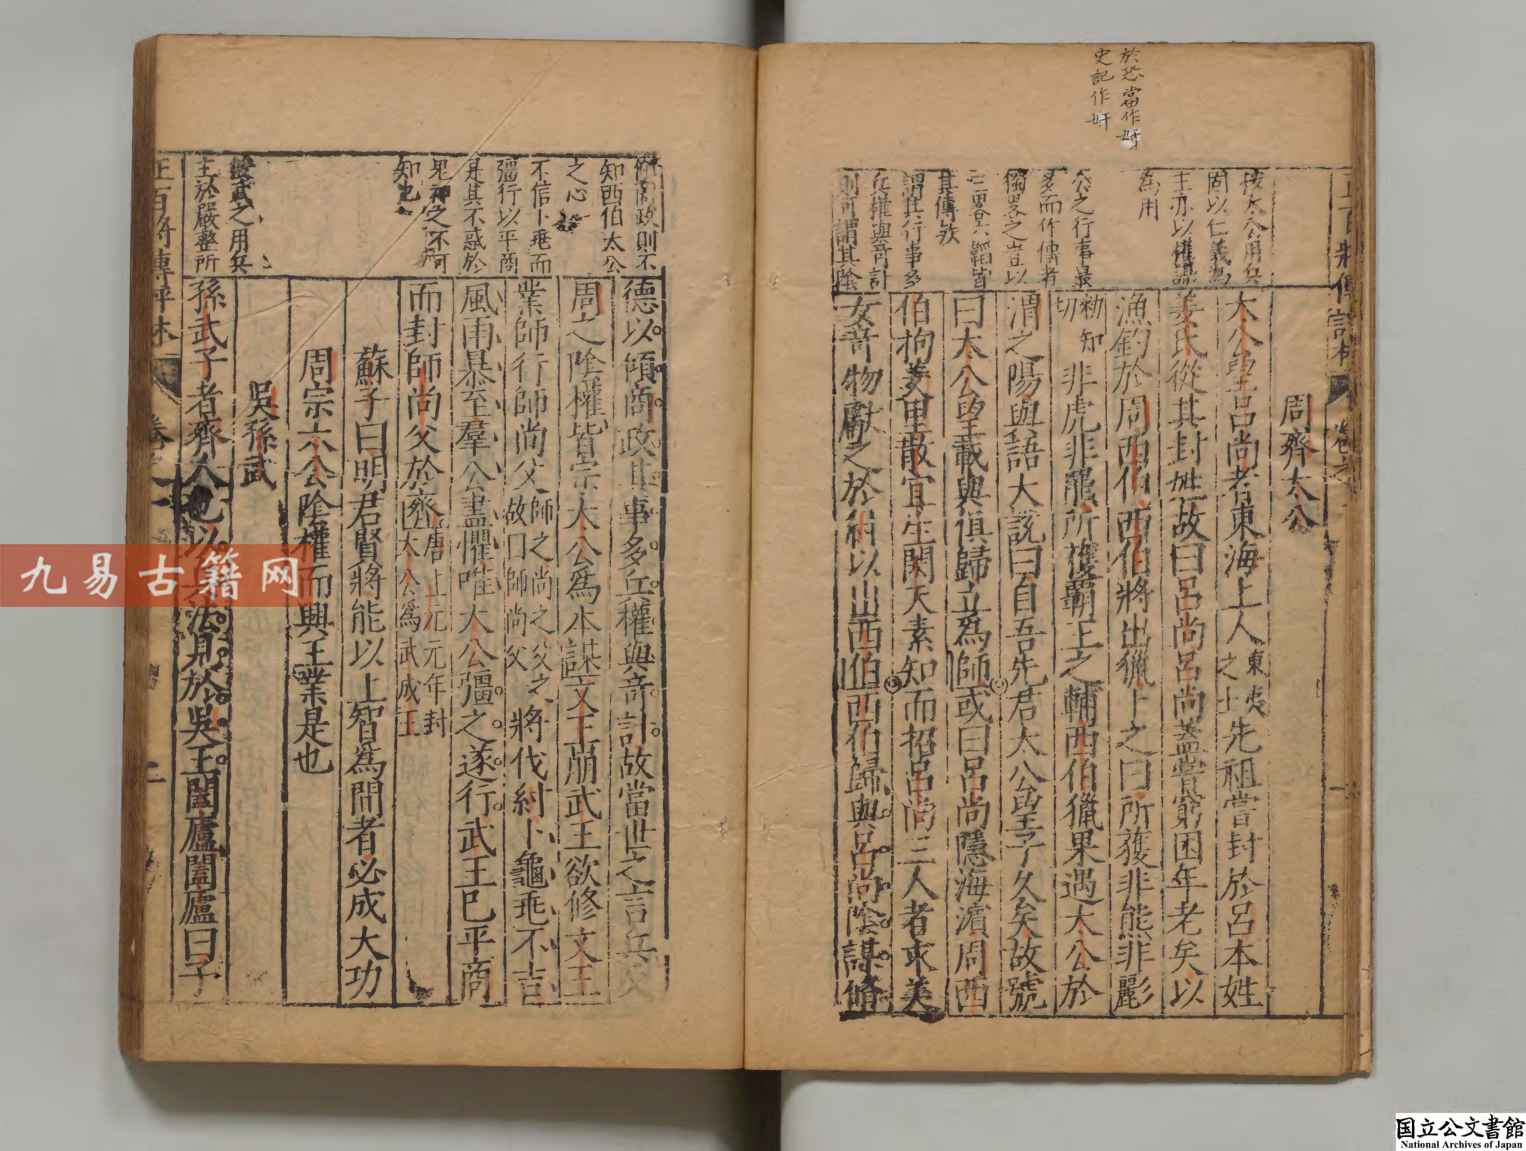 於恐當作𡚱
史記作奸
按太公用兵
固以仁義為
主亦以權謀
為用
太公之行事最
多而作傳者
獨畧之豈以
三畧六韜皆
其傳歟
謂其行事多
兵權與奇計
則可謂其陰
周齊太公
太公望呂尚者東海上人東夷之士先祖嘗封於呂本姓
姜氏從其封姓故曰呂尚呂尚蓋嘗窮困年老矣以
漁釣於周西伯西伯將出獵卜之曰所獲非熊非彲
非虎非羆所獲霸王之輔西伯獵果遇太公於
渭之陽與語大說曰自吾先君太公望子久矣故號
曰太公望載與俱歸立為師或曰呂尚隱海濵周西
伯拘羑里散宜生閎天素知而招呂尚三人者求美
女奇物獻之於紂以出西伯西伯歸與呂尚陰謀脩
傾商政則不
知西伯太公
之心
不信卜龜而
彊行以平商
是其不惑於
鬼神之不可
知也
孫武之用兵
主於嚴整所
德以傾商政其事多兵權與奇計故當世之言兵及
周之陰權皆宗太公為本謀文王崩武王欲修文王
業師行師尚父師之尚之父之故曰師尚父將伐紂卜龜兆不吉
風雨暴至羣公盡懼唯太公彊之遂行武王已平商
而封師尚父於齊唐上元元年封太公為武成王
蘇子曰明君賢將能以上智為間者必成大功
周宗太公陰權而興王業是也
吳孫武
孫武子者齊人也以兵法見於吳王闔廬闔廬曰子
九易古籍网
国立公文書館
National Archives of Japan